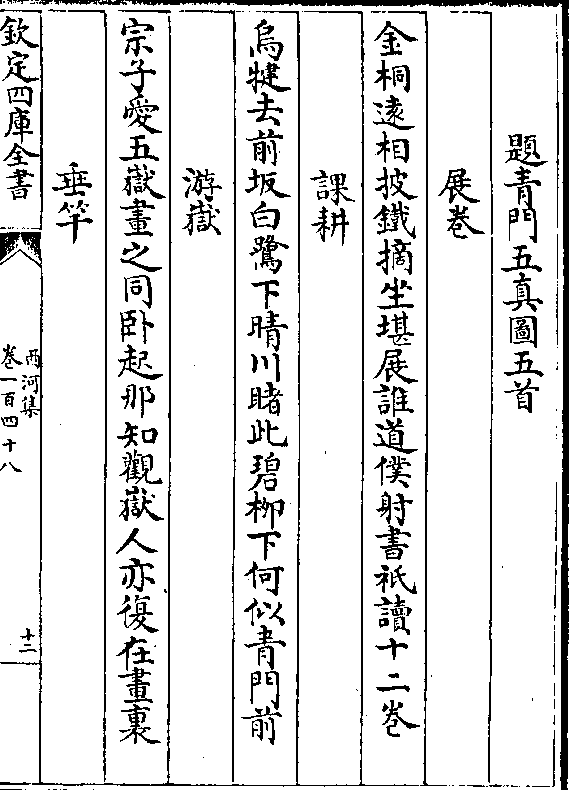 題青門五真圖五首
展巻
金桐逺相披鐵摘坐堪展誰道僕射書祇讀十二巻
課耕
烏犍去前坂白鷺下晴川睹此碧栁下何似青門前
游嶽
宗子愛五嶽畫之同卧起那知觀嶽人亦復在畫裏
垂竿
欽定四庫全書
西河集
巻一百四十八
十二